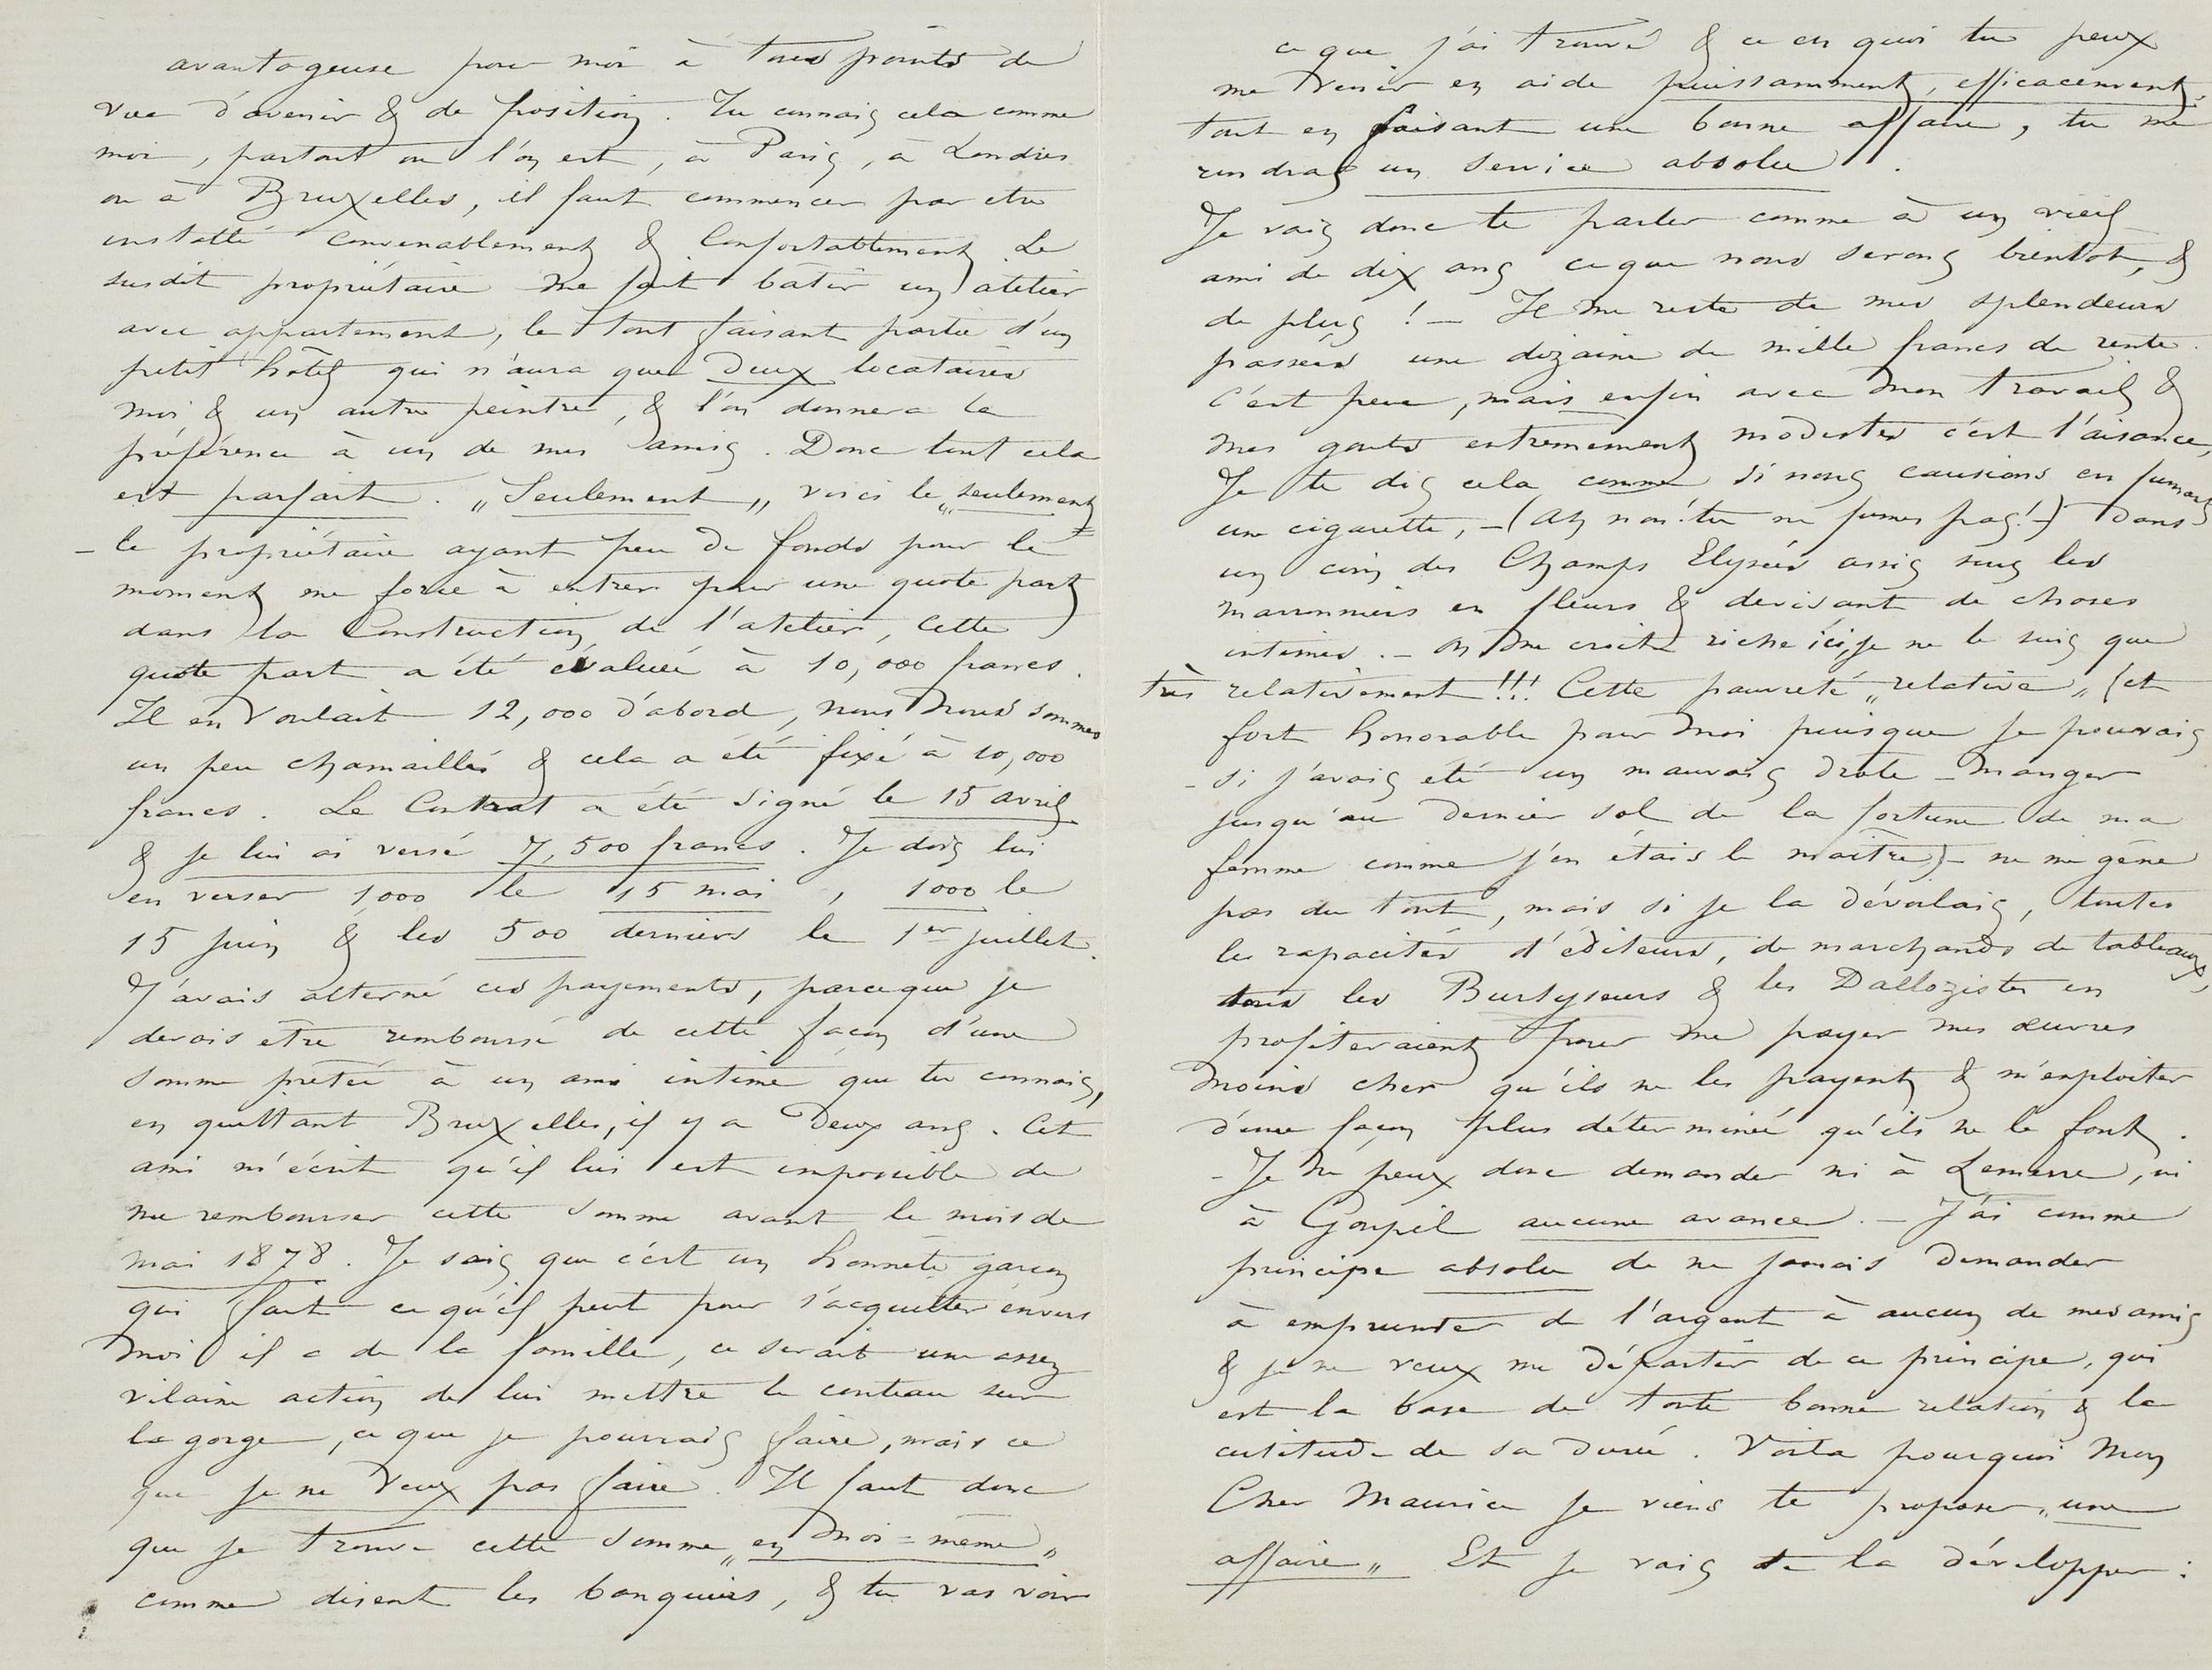 avantageuse pour moi à tous points de
vue d'avenir & de position. Tu connais cela comme
moi, partout où l'on est, à Paris, à Londres
ou à Bruxelles, il faut commencer par etre
installé convenablement & Confortablement. Le
susdit propriétaire me fait batir un atelier
avec appartement, le tout faisant partie d'un
petit hôtel qui n'aura que deux locataires
moi & un autre peintre, & l'on donnera la
préférence à un de mes amis. Donc tout cela
est parfait. „Seulement„ voici le „seulement„
– le propriétaire ayant peu de fonds pour le
moment me force à entrer pour une quote part
dans la Construction de l'atelier, cette
quote part a été évaluée à 10,000 francs.
Il en voulait 12,000 d'abord, nous nous sommes
un peu chamaillés & cela a été fixé à 10,000
francs. Le Contrat a été signé le 15 avril
& je lui ai versé 7,500 francs. Je dois lui
en verser 1000 le 15 mai, 1000 le
15 juin & les 500 derniers le 1er juillet.
J'avais alterné ces payements, parceque je
devais être remboursé de cette façon d'une
somme prêtée à un ami intime que tu connais,
en quittant Bruxelles, il y a deux ans. Cet
ami m'écrit qu'il lui est impossible de
me rembourser cette somme avant le mois de
mai 1878. Je sais que c'est un honnête garçon
qui fait ce qu'il peut pour s'acquitter envers
moi il a de la famille, ce serait une assez
vilaine action de lui mettre le couteau sur
la gorge, ce que je pourrais faire, mais ce
que je ne veux pas faire. Il faut donc
que je trouve cette somme „en moi=même„
comme disent les banquiers, & tu vas voir
ce que j'ai trouvé & ce en quoi tu peux
me venir en aide puissamment, efficacement,
tout en faisant une bonne affaire, tu me
rendras un service absolu.
Je vais donc te parler comme à un vieil
ami de dix ans ce que nous serons bientôt, &
de plus ! – Il me reste de mes splendeurs
passées une dizaine de mille francs de rente.
C'est peu, mais enfin avec mon travail &
mes gouts extremement modestes c'est l'aisance,
Je te dis cela comme si nous causions en fumant
une cigarette, – (Ah non! tu ne fumes pas! –) dans
un coin des Champs Elysées assis sous les
marronniers en fleurs & devisant de choses
intimes. – On me croit riche ici, je ne le suis que
très relativement!!! Cette pauvreté „relative„ (et
fort honorable pour moi puisque je pouvais
– si j'avais été un mauvais drole – manger
jusqu'au dernier sol de la fortune de ma
femme comme j'en étais le maître) – ne me gêne
pas du tout, mais si je la dévoilais, toutes
les rapacités d'éditeurs, de marchands de tableaux,
tous les Burtyseurs & les Dallozistes en
profiteraient pour me payer mes œuvres
moins cher qu'ils ne les payent & m'exploiter
d'une façon plus déterminée qu'ils ne le font.
– Je ne peux donc demander ni à Lemerre, ni
à Goupil aucune avance. – J'ai comme
principe absolu de ne jamais demander
à emprunter de l'argent à aucun de mes amis
& je ne veux me départir de ce principe, qui
est la base de toute bonne relation & la
certitude de sa durée. Voila pourquoi Mon
Cher Maurice je viens te proposer „une
affaire„ Et je vais te la développer :